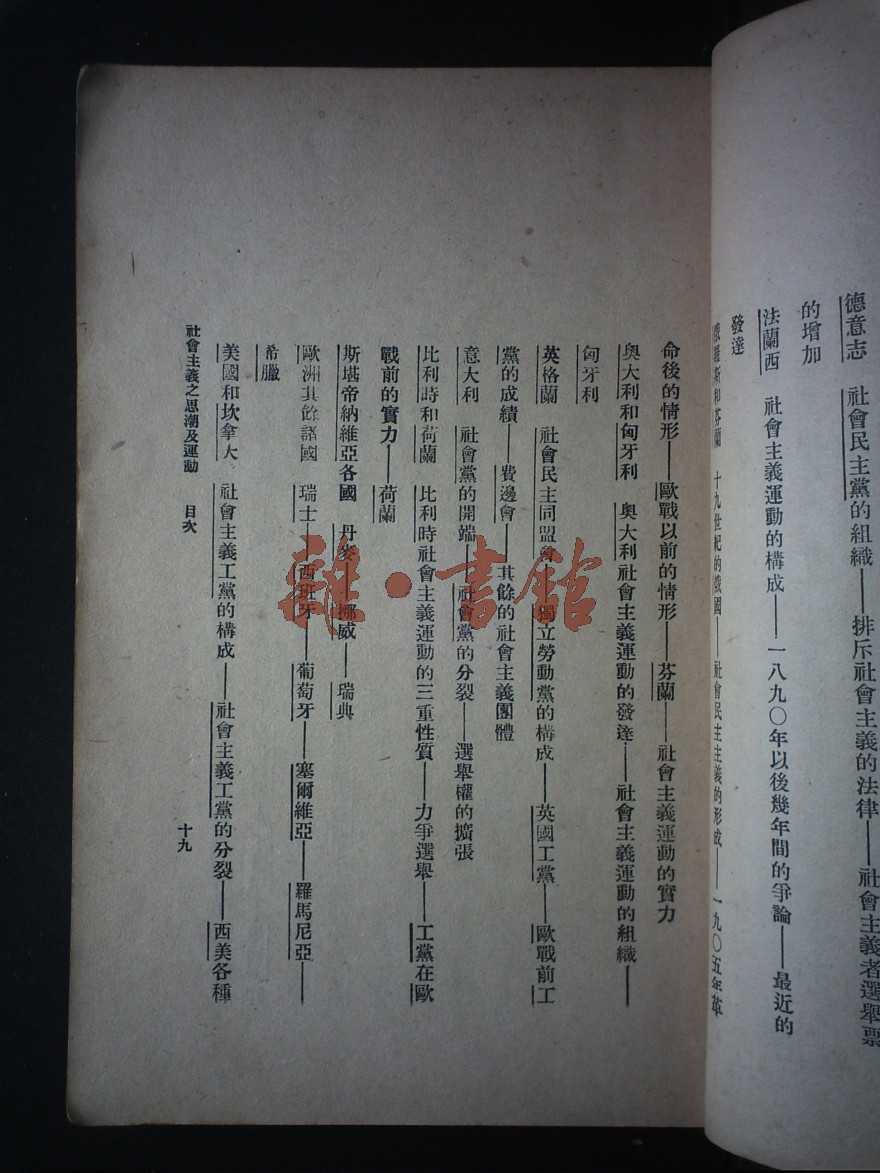 德意志　社會民主黨的組織——排斥社會主義的法律——社會主義者選舉票
的增加
法蘭西　社會主義運動的構成——一八九〇年以後幾年間的爭論——最近的
發達
俄羅斯和芬蘭　十九世紀的俄國——社會民主主義的形成——一九〇五年革
命後的情形——歐戰以前的情形——芬蘭——社會主義運動的實力
奧大利和匈牙利　奧大利社會主義運動的發達——社會主義運動的組織——
匈牙利
英格蘭　社會民主同盟會——獨立勞動黨的構成——英國工黨——歐戰前工
黨的成績——費邊會——其餘的社會主義團體
意大利　社會黨的開端——社會黨的分裂——選舉權的擴張
比利時和荷蘭　比利時社會主義運動的三重性質——力爭選舉——工黨在歐
戰前的實力——荷蘭
斯堪帝納維亞各國　丹麥——挪威——瑞典
歐洲其餘諸國　瑞士——西班牙——葡萄牙——塞爾維亞——羅馬尼亞——
希臘
美國和坎拿大　社會主義工黨的構成——社會主義工黨的分裂——西美各種
社會主義之思潮及運動　目次
十九
雜·書館